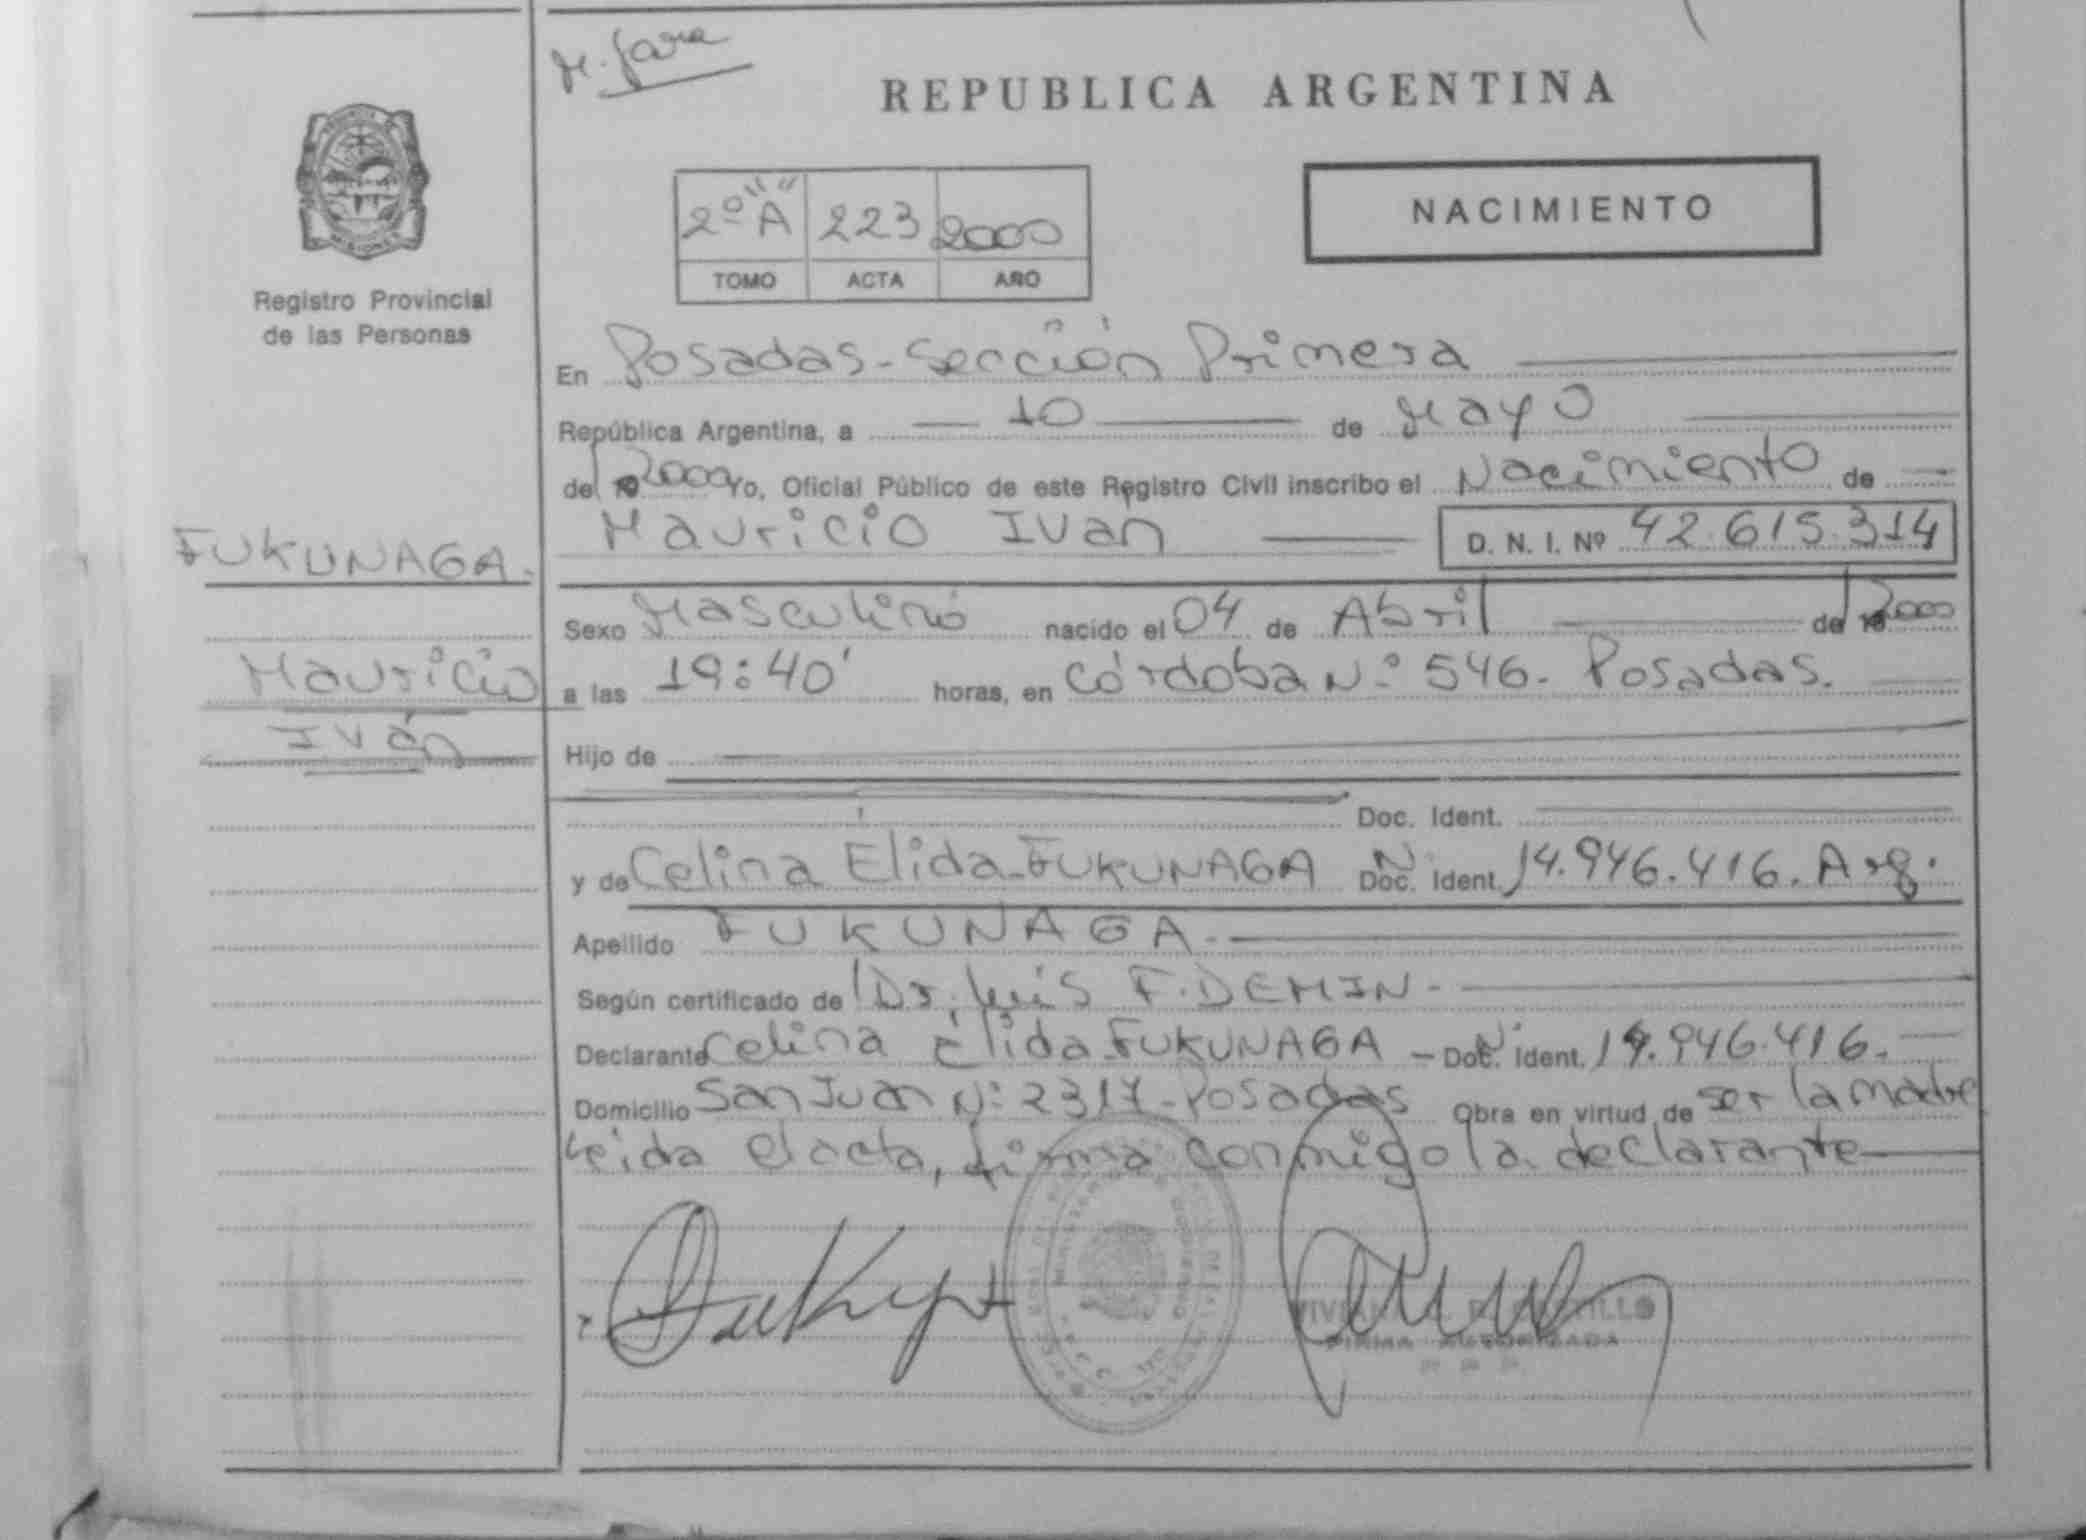 REPUBLICA ARGENTINA
NACIMIENTO
2º "A" 223 2000
TOMO ACTA AÑO
Registro Provincial
de las Personas
En Posadas - Sección Primera
República Argentina, a 10 de Mayo
del 2000 Yo, Oficial Público de este Registro Civil inscribo el Nacimiento de
Mauricio Ivan D. N. I. Nº 42.615.314
FUKUNAGA.
Mauricio
Iván
Sexo Masculino nacido el 04 de Abril del 2000
a las 19:40' horas, en Córdoba Nº 546. Posadas.
Hijo de
Doc. Ident.
y de Celina Élida FUKUNAGA Doc. Ident. 14.946.416. Arg.
Apellido FUKUNAGA.
Según certificado de Dr. Luis F. DEMIN.
Declarante Celina Élida FUKUNAGA - Doc. Ident. 14.946.416.
Domicilio San Juan Nº 2317 - Posadas Obra en virtud de ser la madre
Leida el acta, firma conmigo la declarante
FIRMA AUTORIZADA